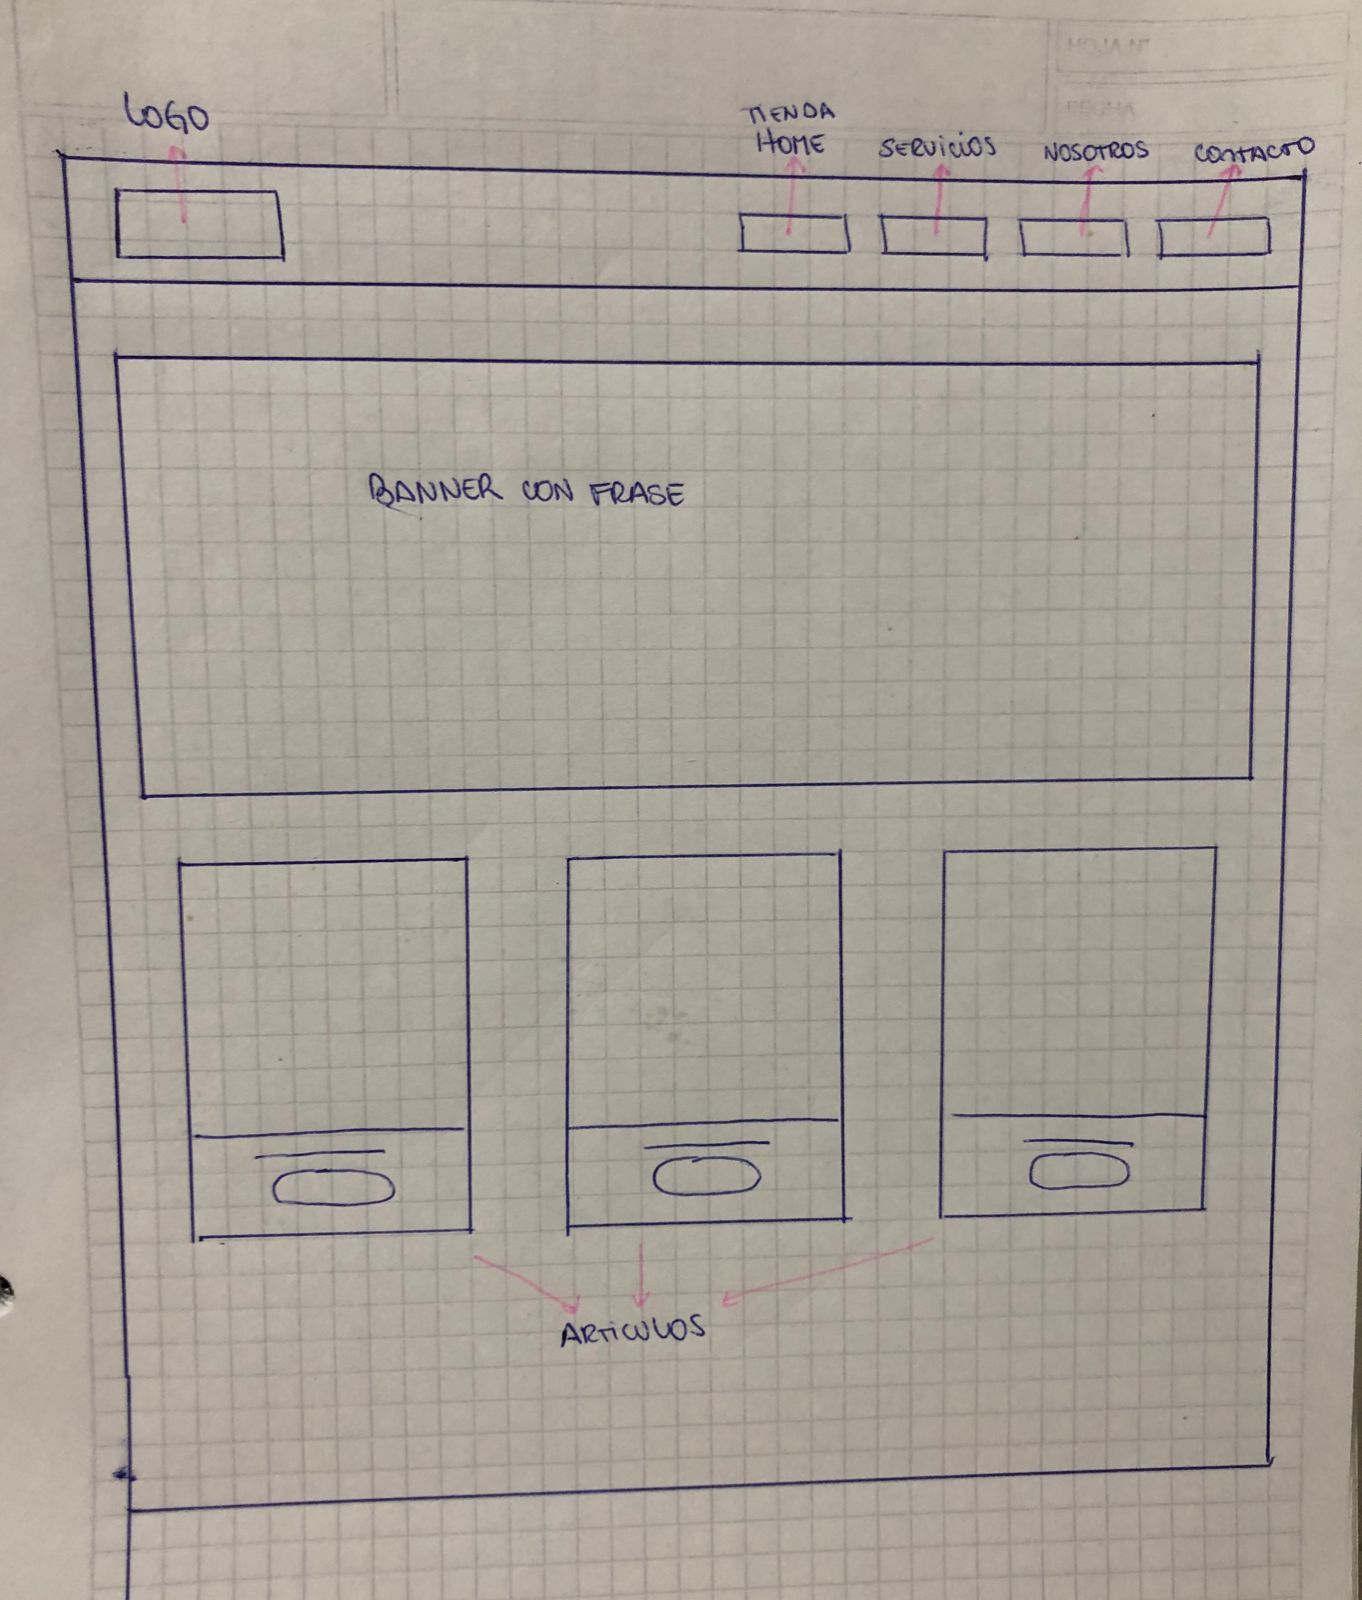 HOJA N°
FECHA
LOGO
TIENDA
HOME
SERVICIOS
NOSOTROS
CONTACTO
BANNER CON FRASE
ARTICULOS